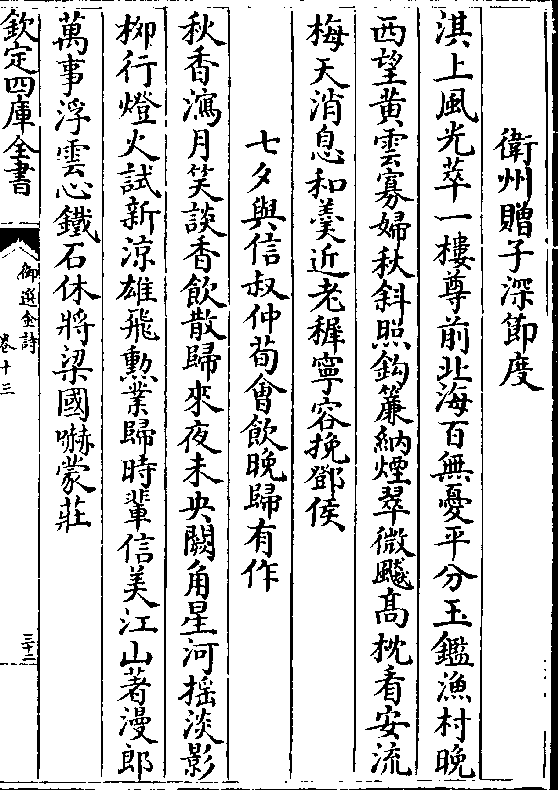 衛州贈子深節度
淇上風光萃一樓尊前北海百無憂平分玉鑑漁村晚
西望黄雲寡婦秋斜照鈎簾納煙翠微颸高枕看安流
梅天消息和羮近老穉寧容挽鄧侯
七夕與信叔仲荀會飲晚歸有作
秋香瀉月笑談香飲散歸來夜未央闕角星河摇淡影
栁行燈火試新涼雄飛勲業歸時輩信美江山著漫郎
萬事浮雲心鐵石休將梁國嚇蒙莊
欽定四庫全書
御選金詩
卷十三
三十二